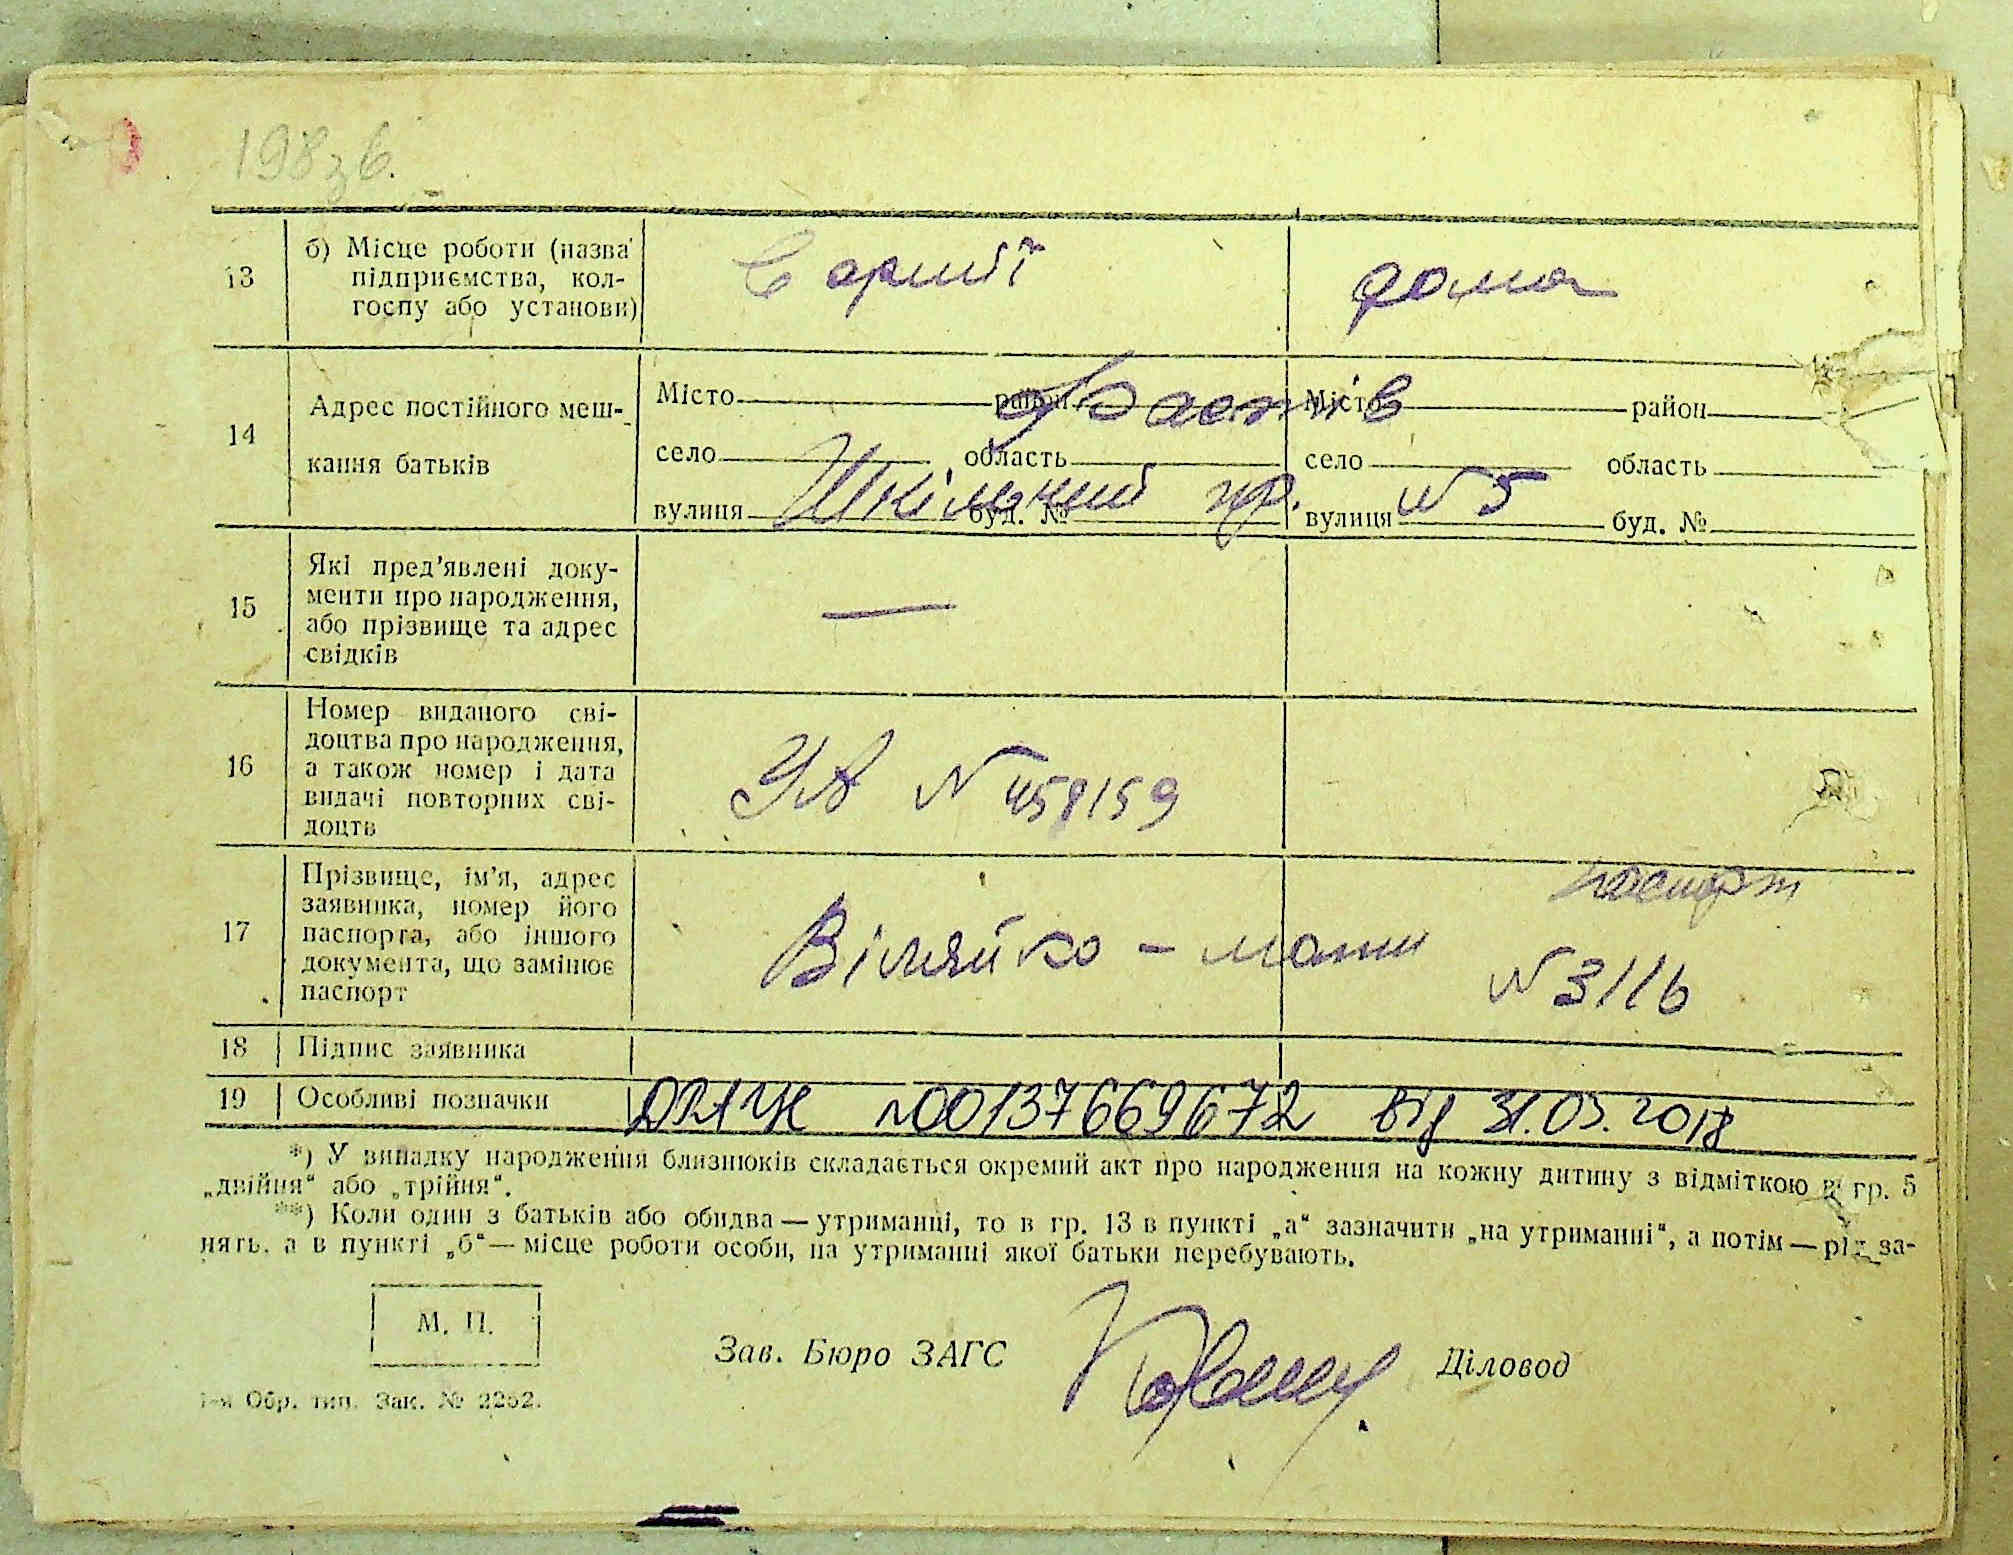 198зв.
13
б) Місце роботи (назва
підприємства, кол-
госпу або установи)
в армії
дома
14
Адрес постійного меш-
кання батьків
Місто район Місто район
Фастів
село область село область
Шкільний пр. № 5
вулиця буд. № вулиця буд. №
15
Які пред'явлені доку-
менти про народження,
або прізвище та адрес
свідків
—
16
Номер виданого сві-
доцтва про народження,
а також номер і дата
видачі повторних сві-
доцтв
УА № 458159
17
Прізвище, ім'я, адрес
заявника, номер його
паспорта, або іншого
документа, що замінює
паспорт
паспорт
Віляйко - мати
№ 3116
18 Підпис заявника
19 Особливі позначки
№00137669672 від 31.05.2018
*) У випадку народження близнюків складається окремий акт про народження на кожну дитину з відміткою в гр. 5
„двійня“ або „трійня“.
**) Коли один з батьків або обидва — утриманці, то в гр. 13 в пункті „а“ зазначити „на утриманні“, а потім — рід за-
нять, а в пункті „б“ — місце роботи особи, на утриманні якої батьки перебувають.
М. П.
Зав. Бюро ЗАГС
Діловод
1-я Обр. тип. Зак. № 2252.